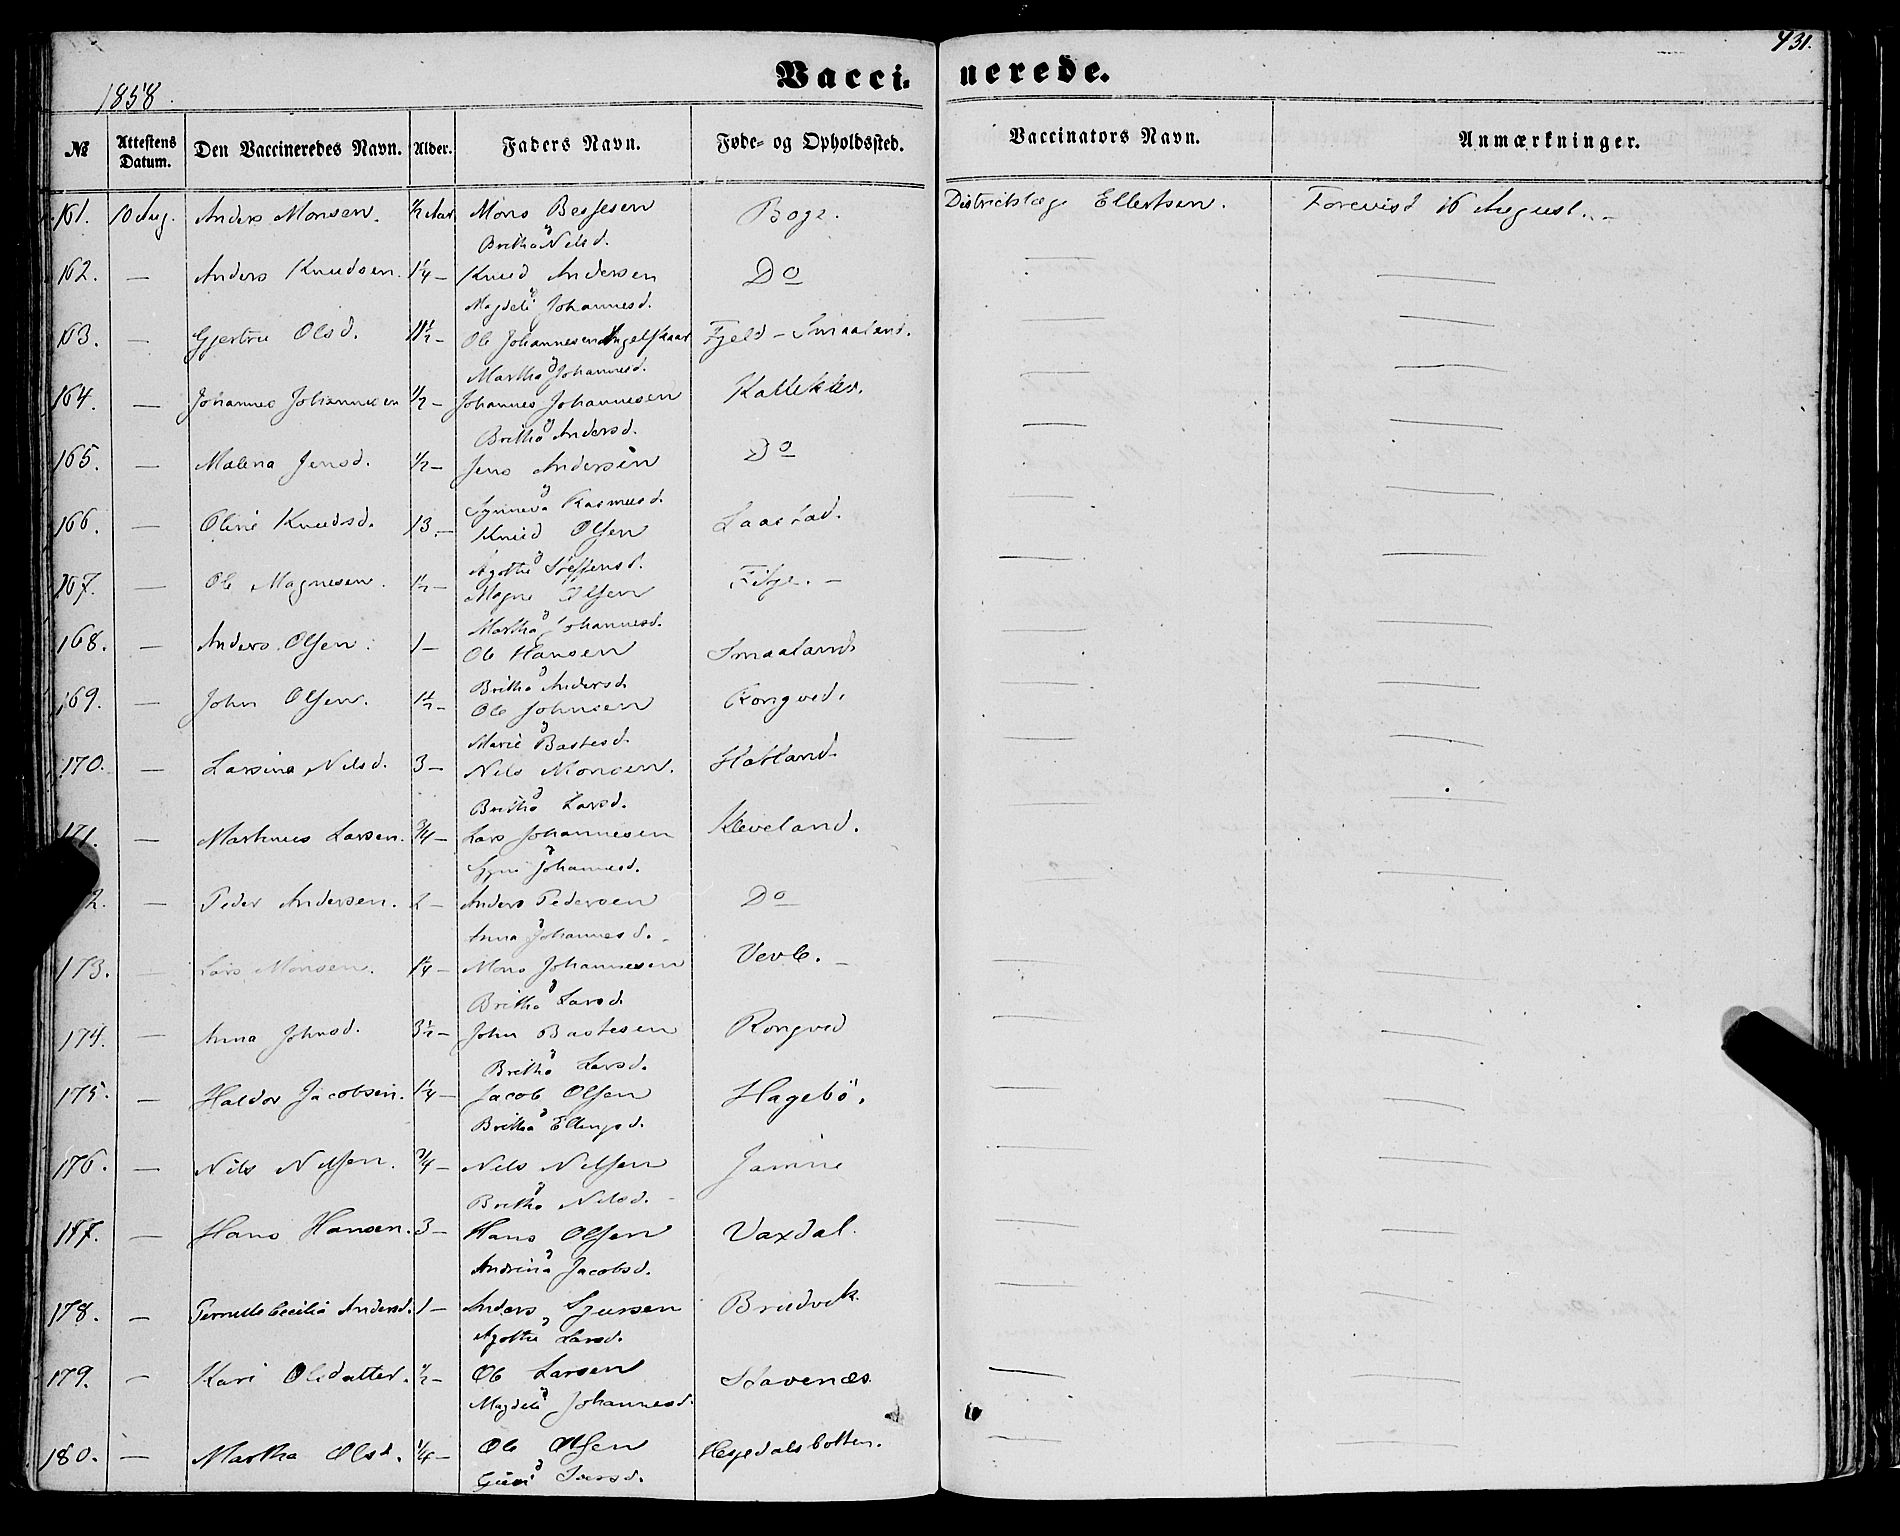 431.
1858.
Vacci- nerede.
№ Attestens Datum. Den Vaccineredes Navn. Alder. Faders Navn. Føde- og Opholdssted. Vaccinators Navn. Anmærkninger.
161. 10 Aug. Anders Monsen. 1/2 Aar Mons Bessesen Boge. Districtslæge Ellertsen. Forevist 16 August. -
Britha Nilsd.
162. — Anders Knudsen. 1 1/4 — Knud Andersen Do — —
Magdeli Johannesd.
163. — Gjertru Olsd. 11 1/2 — Ole Johannesen Fjeld - Smaaland. — —
Martha Johannesd.
164. — Johannes Johannesen 1/2 — Johannes Johannesen Kalleklev. — —
Britha Andersd.
165. — Malena Jensd. 1/2 — Jens Andersen Do — —
Synneva Rasmusd.
166. — Oline Knudsd. 13. — Knud Olsen Laastad. — —
Agothe Steffensd.
167. — Ole Magnesen. 1 1/2 — Magne Olsen — — —
Martha Johannesd.
168. — Anders Olsen. 1 — Ole Hansen Smaaland — —
Britha Andersd.
169. — John Olsen. 1 1/2 — Ole Johnsen Rongved. — —
Marie Bastesd.
170. — Larsina Nilsd. 3 — Nils Monsen. Hatland. — —
Britha Larsd.
171. — Martinus Larsen. 3/4 — Lars Johannesen Kleveland. — —
Johannesd.
2. — Peder Andersen. 2 — Anders Pedersen Do — —
Anna Johannesd. -
173. — Lars Monsen. 1 1/4 — Mons Johannesen Vevle. — — —
Britha Larsd.
174. — Anna Johnsd. 3 1/2 — John Bastesen Rongved — —
Britha Larsd.
175. — Haldor Jacobsen. 1 1/4 — Jacob Olsen Hagebö. — —
Britha Ellingsd.
176. — Nils Nilsen. 3/4 — Nils Nilsen Jamne — —
Britha Nilsd. -
177. — Hans Hansen. 3 — Hans Olsen Vaxdal. — —
Andrina Jacobsd.
178. — Pernille Cecilia Andersd. 1 — Anders Sjursen Bruvik — —
Agothe Larsd.
179. — Kari Olsdatter. 1/2 — Ole Larsen Stavenæs — —
Magdeli Johannesd.
180. — Martha Olsd. 1/4 — Ole Olsen Hesjedalsbotten. — —
Guri Iversd.